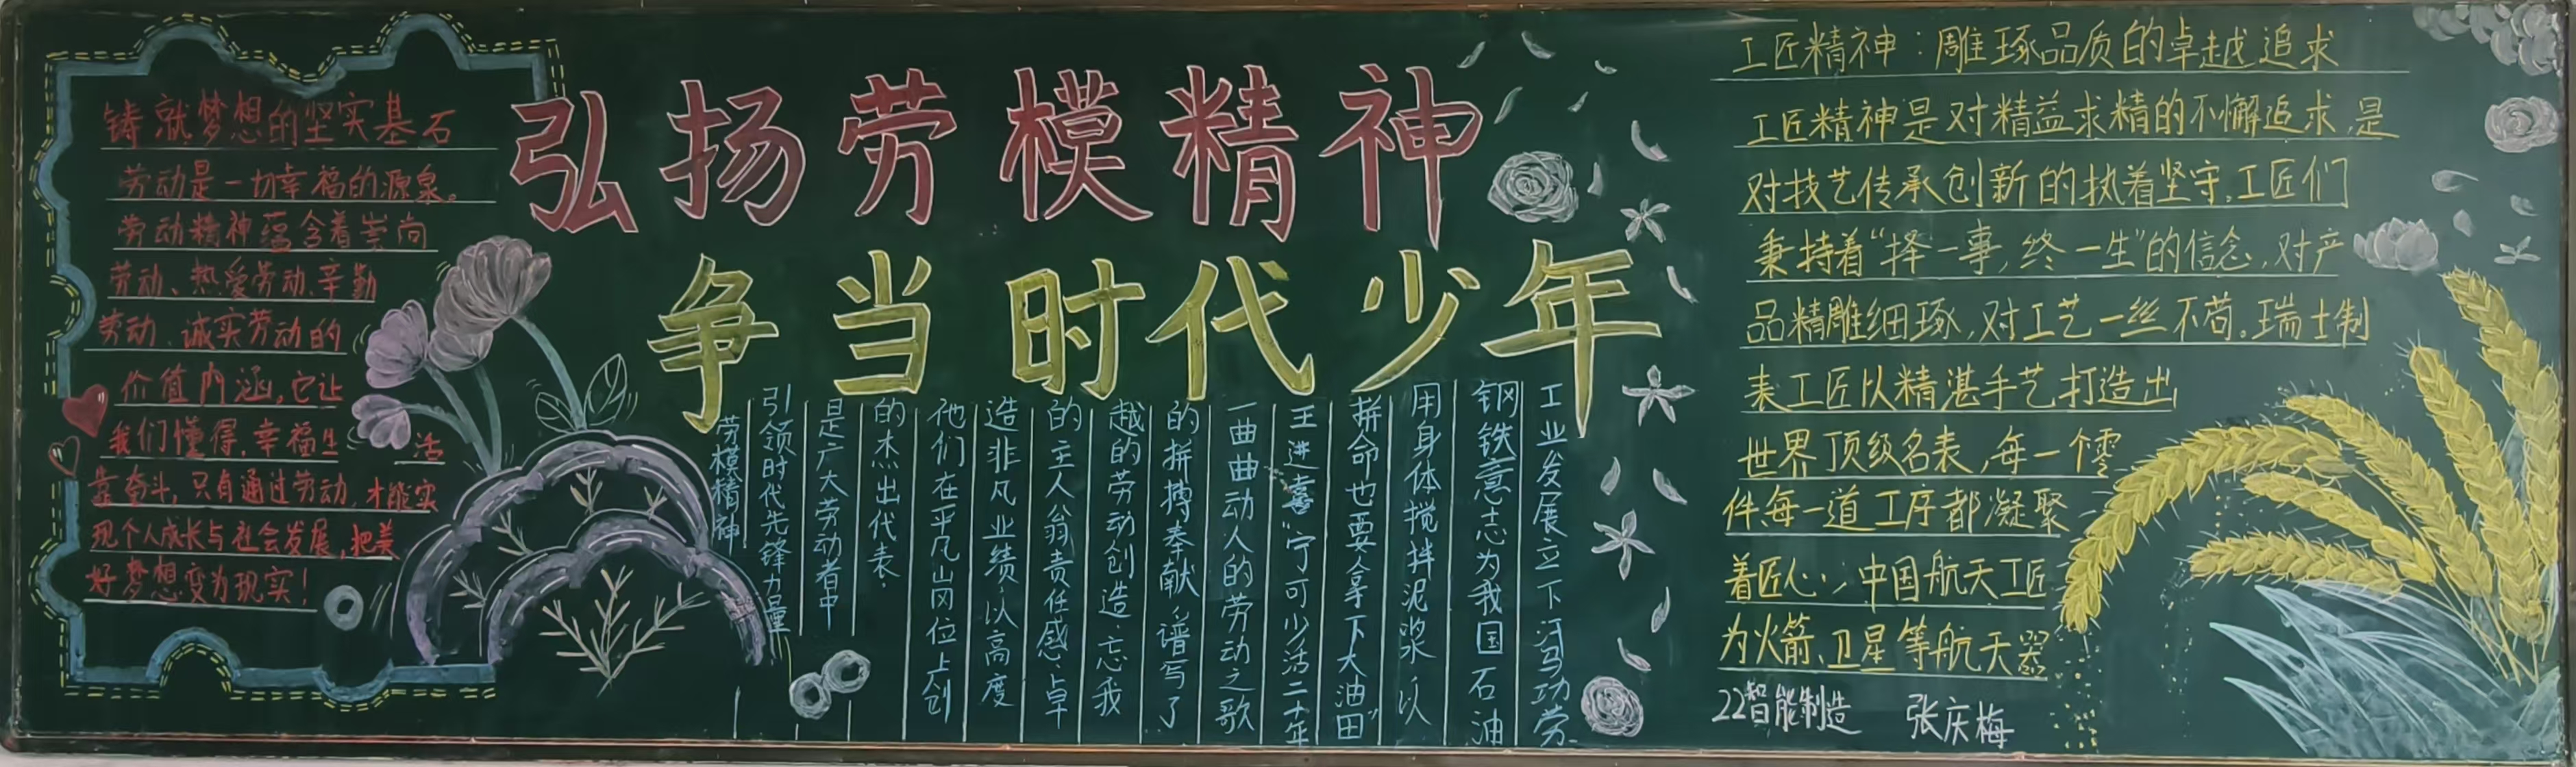 弘扬劳模精神
争当时代少年
铸就梦想的坚实基石
劳动是一切幸福的源泉。
劳动精神蕴含着崇尚
劳动、热爱劳动、辛勤
劳动、诚实劳动的
价值内涵,它让
我们懂得,幸福生活
靠奋斗,只有通过劳动,才能实
现个人成长与社会发展,把美
好梦想变为现实!
劳模精神
引领时代先锋力量
是广大劳动者中
的杰出代表.
他们在平凡岗位上创
造非凡业绩,以高度
的主人翁责任感、卓
越的劳动创造、忘我
的拼搏奉献,谱写了
一曲曲动人的劳动之歌
王进喜"宁可少活二十年
拼命也要拿下大油田"
用身体搅拌泥浆,以
钢铁意志为我国石油
工业发展立下汗马功劳.
工匠精神:雕琢品质的卓越追求
工匠精神是对精益求精的不懈追求,是
对技艺传承创新的执着坚守。工匠们
秉持着“择一事,终一生”的信念,对产
品精雕细琢,对工艺一丝不苟。瑞士制
表工匠以精湛手艺打造出
世界顶级名表,每一个零
件、每一道工序都凝聚
着匠心;中国航天工匠
为火箭、卫星等航天器
22智能制造 张庆梅